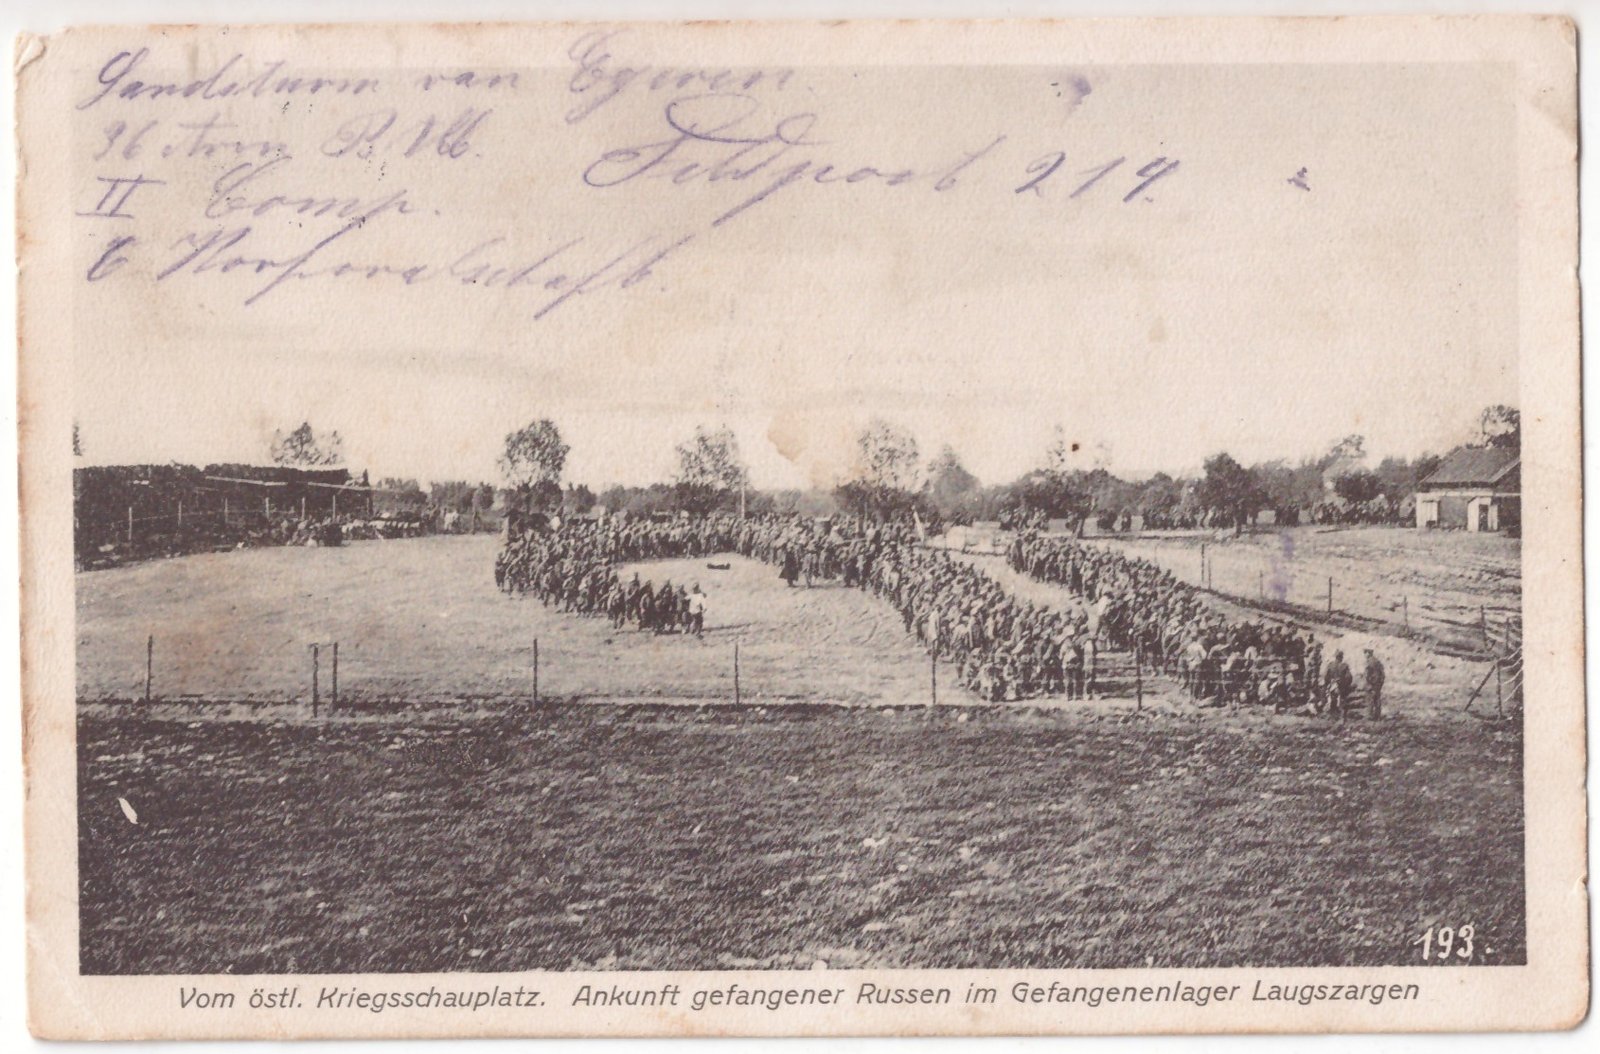 Landsturm van Egeren.
36 B.
II Comp. Feldpost 214.
6 Korporalschaft.
193.
Vom östl. Kriegsschauplatz. Ankunft gefangener Russen im Gefangenenlager Laugszargen